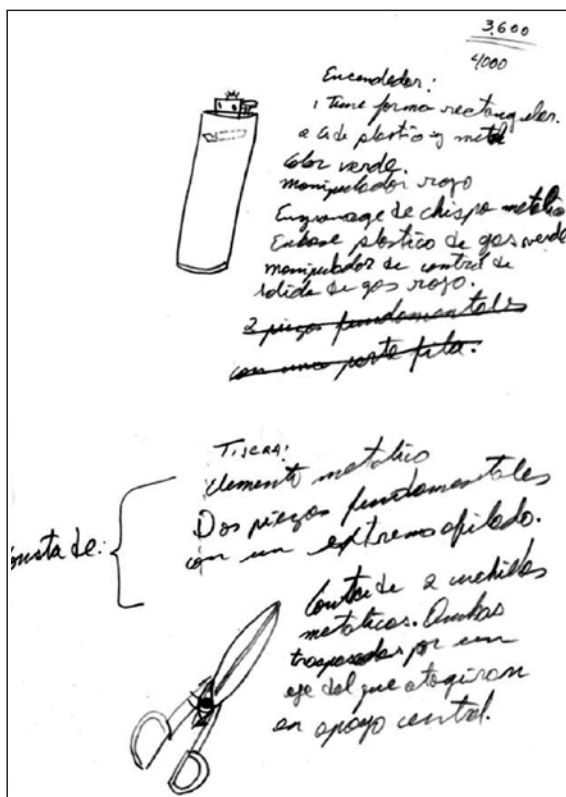 3.600
4000
Encendedor:
1 Tiene forma rectangular.
es de plastico y metal
Color verde.
manipulador rojo
Engranage de chispa metalico
Enbase plastico de gas verde
manipulador de control de
salida de gas rojo.
2 piezas fundamentales
con una parte fila.
TIJERA:
elemento metalico
Dos piezas fundamentales
con un extremo afilado.
onsta de:
de 2 cuchillas
metalicas. Ambas
traspasadas por un
eje del que
en apoyo central.